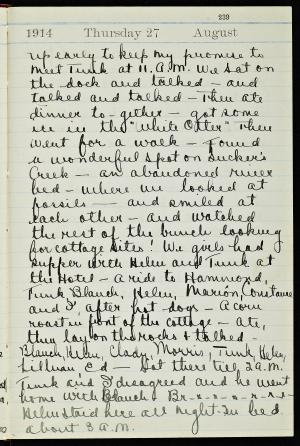 239
1914 Thursday 27 August
up early to keep my promise to
meet Tunk at 11. A.M. We sat on
the dock and talked - and
talked and talked - Then ate
dinner to-gether - got some
ice in the "White Otter" Then
went for a walk - Found
a wonderful spot on Sucker's
Creek - an abandoned river
bed - where we looked at
fossils - and smiled at
each other - and watched
the rest of the bunch looking
for cottage sites! We girls had
supper with Helen and Tunk at
the Hotel - A ride to Hammond,
Tunk, Blanch, Helen, Marion, Constance
and I, after hot dogs - A corn
roast in front of the cottage - Ate,
then lay on the rocks & talked -
Blanch, Helen, Morris, Tunk, Helen,
Lillian, Ed - Sat there till 2 A.M.
Tunk and I disagreed and he went
home with Blanch! Br-r-r-r-r-r-s
Helen staid here all night. In bed
about 3 A.M.